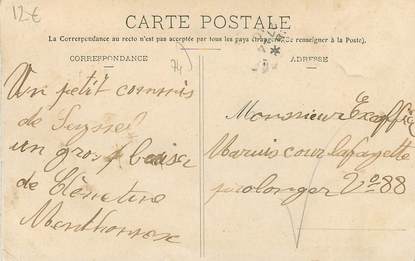 12-€
CARTE POSTALE
La Correspondance au recto n'est pas acceptée par tous les pays étrangers (Se renseigner à la Poste).
CORRESPONDANCE
74
ADRESSE
Un petit commis
de Seyssel
un gros baiser
de Clénetine
Menthonnex
Monsieur
Maruis cour lafayette
prolonger 88